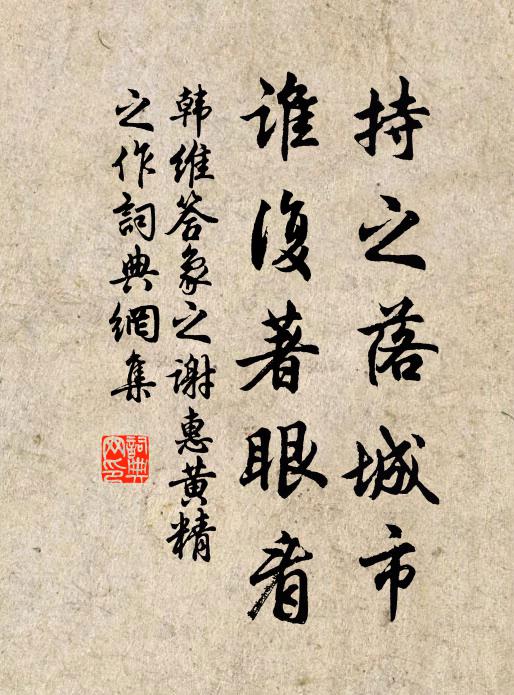 持之落城市
谁復著眼看
韩维答象之谢惠黄精
之作詞典網集
詞典網印